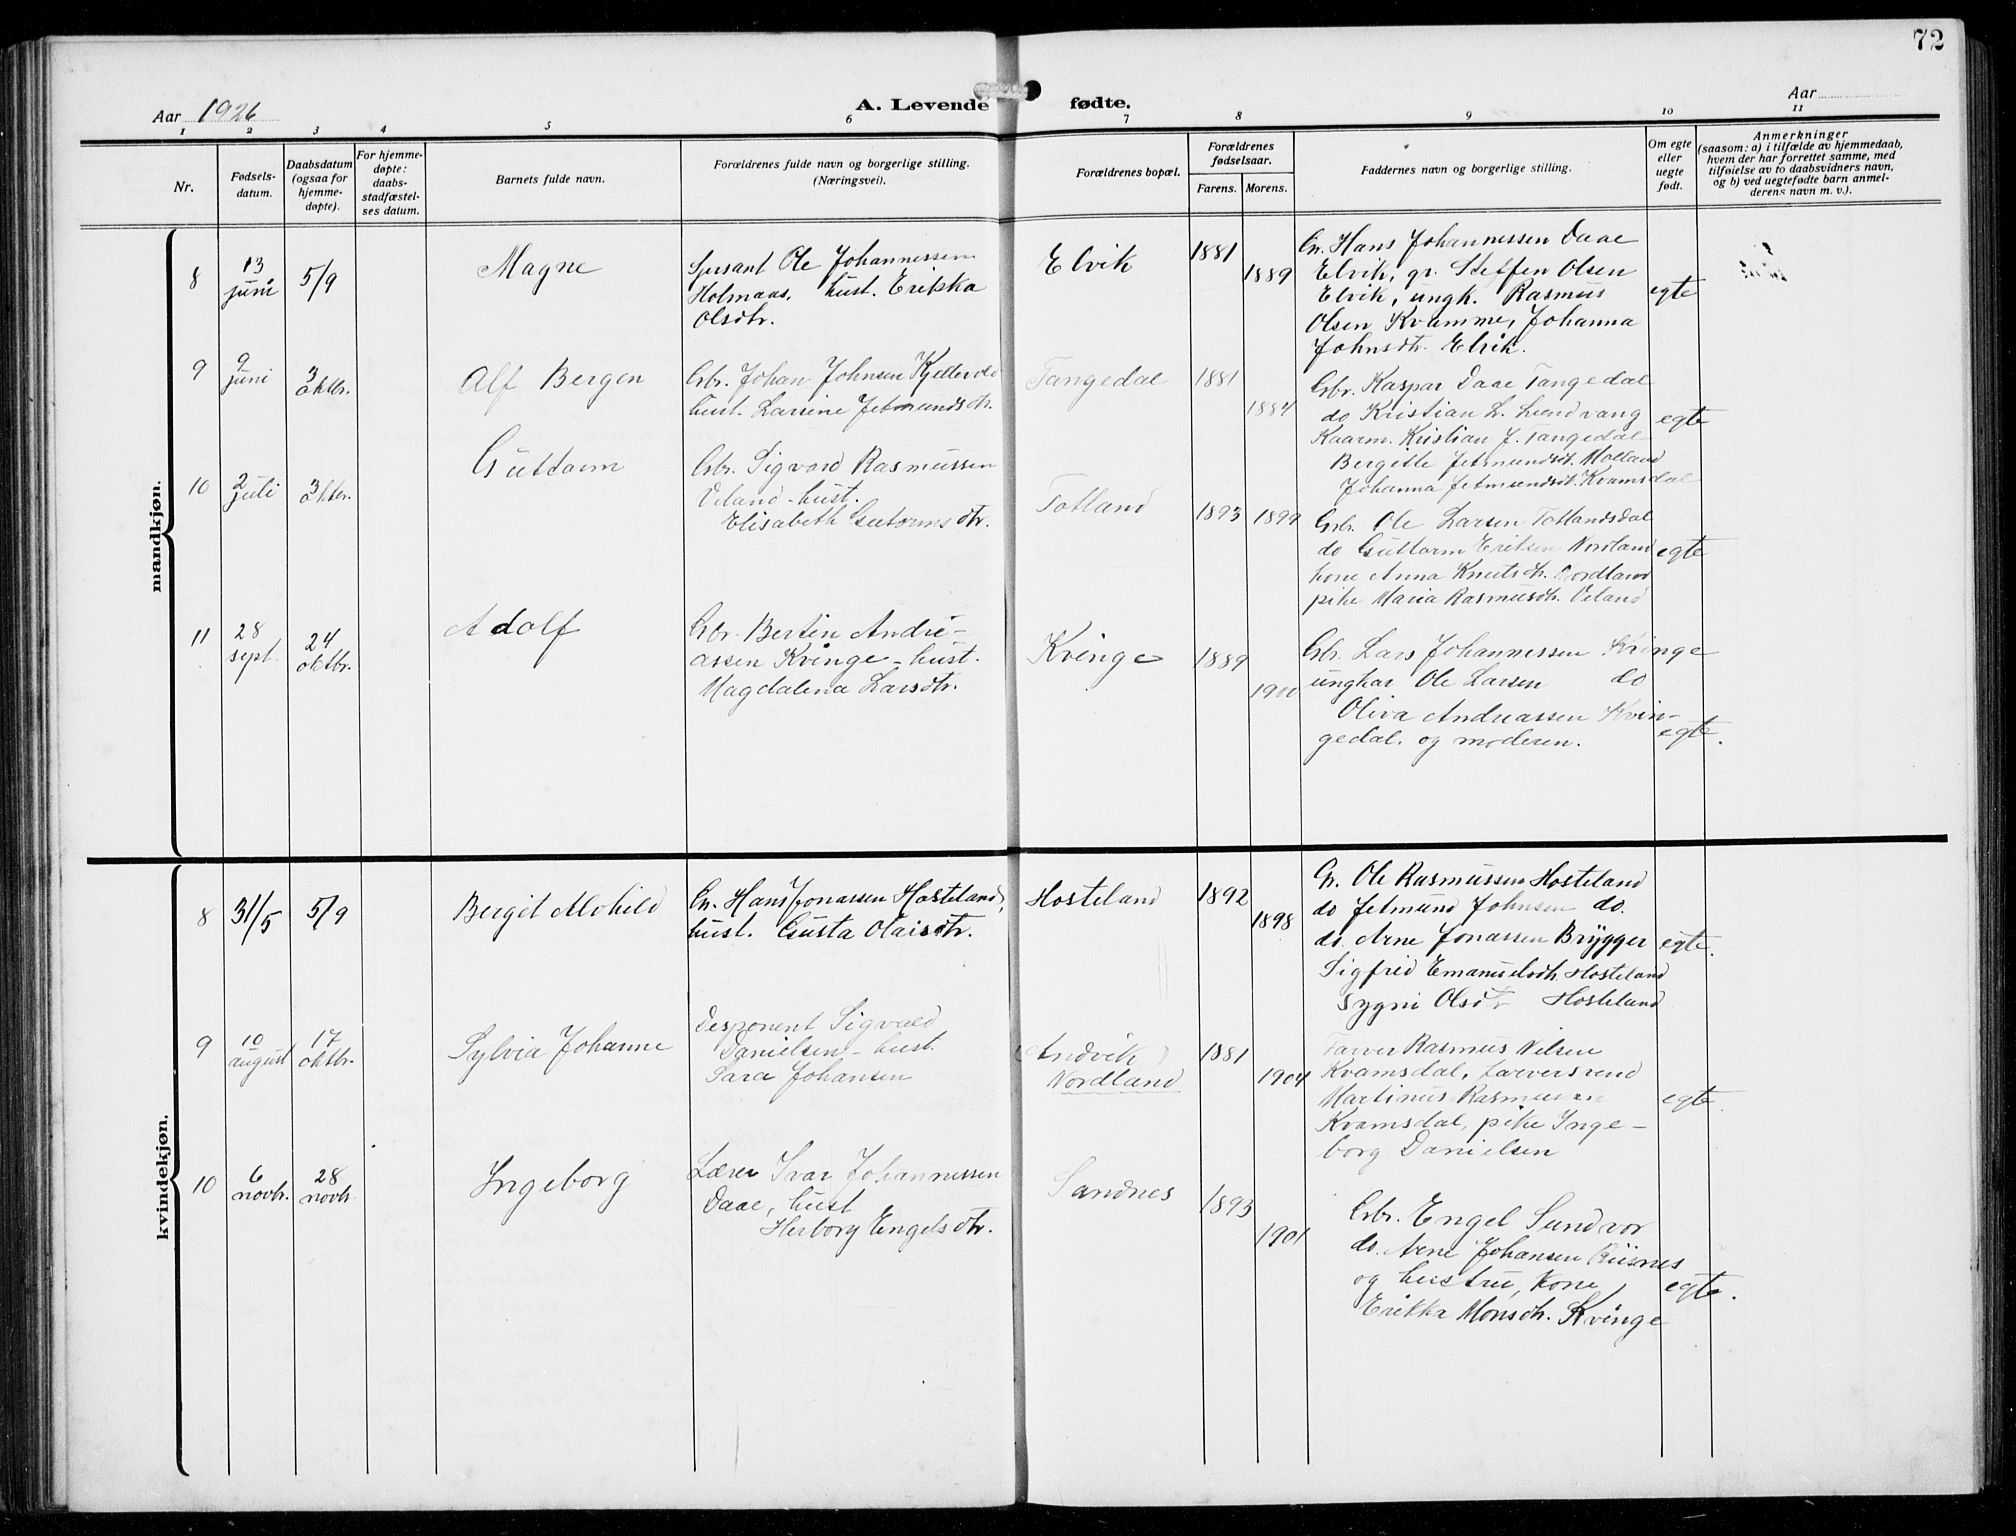 72
Aar 1926
A. Levende fødte.
Aar
1 2 3 4 5 6 7 8 9 10 11
Nr.
Fødsels-
datum.
Daabsdatum
(ogsaa for
hjemme-
døpte).
For hjemme-
døpte:
daabs-
stadfæstel-
ses datum.
Barnets fulde navn.
Forældrenes fulde navn og borgerlige stilling.
(Næringsvei).
Forældrenes bopæl.
Forældrenes
fødselsaar.
Farens. Morens.
Faddernes navn og borgerlige stilling.
Om egte
eller
uegte
født.
Anmerkninger
(saasom: a) i tilfælde av hjemmedaab,
hvem der har forrettet samme, med
tilføielse av to daabsvidners navn,
og b) ved uegtefødte barn anmel-
derens navn m. v.).
mandkjøn.
8
13
juni
5/9
Magne
Ole Johannessen
Holmaas, hust. Erikka
Olsdtr.
Elvik
1881
1889
Gr. Hans Johannessen Daae
Elvik, gr. Steffen Olsen
Elvik, ungk. Rasmus
Olsen Kvamme, Johanna
Johnsdtr. Elvik.
egte
9
9
juni
3
oktbr.
Alf Bergen
Gbr. Johan Johnsen Kjellevold
hust. Larsine Jetmundsdtr.
Tangedal
1881
1884
Gbr. Kaspar Daae Tangedal
do Kristian L. Lundvang
Kaarm. Kristian J. Tangedal
Bergitte Jetmundsdtr. Molland
Johanna Jetmundsdtr. Kvamsdal
egte
10
2
juli
3
oktbr.
Guttorm
Gbr. Sigvard Rasmussen
Veland - hust.
Elisabeth Guttormsdtr.
Totland
1893
1899
Gbr. Ole Larsen Totlandsdal
do Guttorm Eriksen Nordland
kone Anna Knutsdtr. Nordland
pike Maria Rasmusdtr. Veland
egte
11
28
sept.
24
oktbr.
Adolf
Gbr. Bertin Andre-
assen Kvinge - hust.
Magdalena Larsdtr.
Kvinge
1889
1900
Gbr. Lars Johannessen Kvinge
ungkar Ole Larsen do
Oliva Andreassen Kvin-
gedal. og moderen.
egte.
kvindekjøn.
8
31/5
5/9
Bergit Alvhild
Gr. Hans Jonassen Hosteland,
hust. Gusta Olaisdtr.
Hosteland
1892
1898
Gr. Ole Rasmussen Hosteland
do Jetmund Johnsen do.
do. Arne Jonassen Brygger
Sigfrid Emanuelsdtr. Hosteland
Sygni Olsdtr Hosteland
egte.
9
10
august
17
oktbr.
Sylvia Johanne
Desponent Sigvald
Danielsen - hust.
Sara Johansen
(Andvik)
Nordland
1881
1904
Farver Rasmus Nilsen
Kvamsdal, farversvend
Martinus Rasmussen
Kvamsdal, pike Inge-
borg Danielsen
egte.
10
6
novbr.
28
novbr
Ingeborg
Lærer Ivar Johannessen
Daae, hust
Herborg Engelsdtr.
Sandnes
1893
1901
Gbr. Engel Sundvor
do. Arne Johansen Riisnes
og hustru, Kone
Erikka Monsdtr. Kvinge
egte.